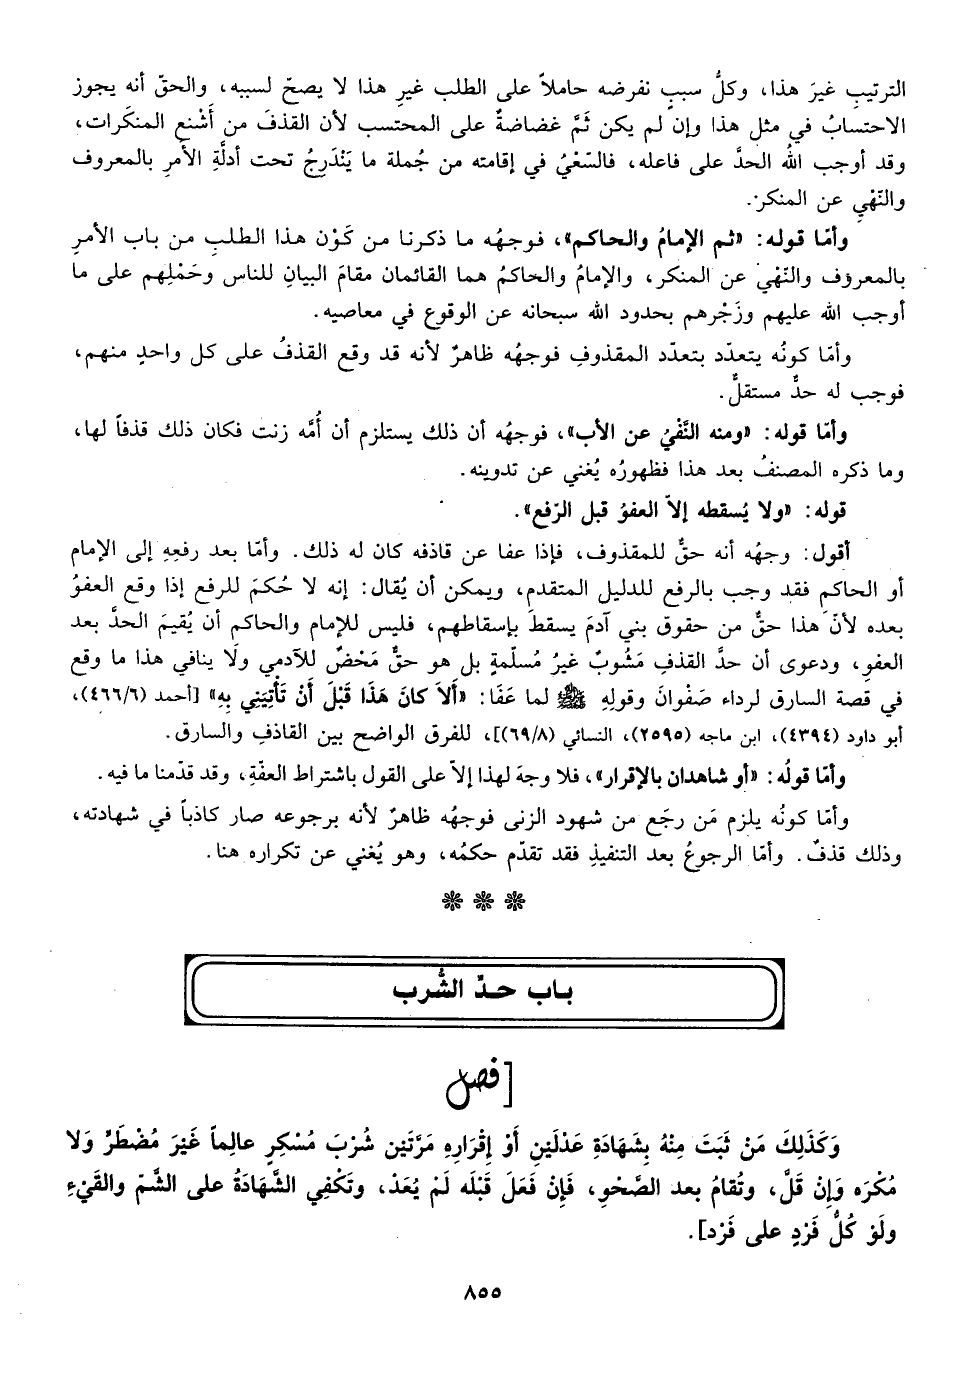 الترتيبِ غيرَ هذا، وكلُّ سببٍ نفرضه حاملاً على الطلب غيرِ هذا لا يصحّ لسببه، والحقّ أنه يجوز
الاحتسابُ في مثل هذا وإن لم يكن ثَمَّ غضاضةٌ على المحتسب لأن القذفَ من أشْنع المنكَرات،
وقد أوجب اللهُ الحدَّ على فاعله، فالسّعْيُ في إقامته من جُملة ما يَنْدَرِجُ تحت أدلَّةِ الأمرِ بالمعروف
والنّهْيِ عن المنكر.
وأمّا قوله: «ثم الإمامُ والحاكم»، فوجهُه ما ذكرنا من كَوْن هذا الطلبِ من باب الأمرِ
بالمعروف والنّهْيِ عن المنكر، والإمامُ والحاكمُ هما القائمان مقامَ البيانِ للناس وحَمْلِهم على ما
أوجب الله عليهم وزَجْرِهم بحدود الله سبحانه عن الوقوع في معاصيه.
وأمّا كونُه يتعدّد بتعدّد المقذوفِ فوجهُه ظاهرٌ لأنه قد وقع القذفُ على كل واحدٍ منهم،
فوجب له حدٌّ مستقلٌّ.
وأمّا قوله: «ومنه النَّفْيُ عن الأب»، فوجهُه أن ذلك يستلزم أن أُمَّه زنت فكان ذلك قذفاً لها،
وما ذكره المصنفُ بعد هذا فظهورُه يُغني عن تدوينه.
قوله: «ولا يُسقطه إلاّ العفوُ قبل الرّفع».
أقول: وجهُه أنه حقٌّ للمقذوف، فإذا عفا عن قاذفه كان له ذلك. وأمّا بعد رفعِهِ إلى الإمام
أو الحاكم فقد وجب بالرفع للدليل المتقدم، ويمكن أن يُقال: إنه لا حُكمَ للرفع إذا وقع العفوُ
بعده لأنّ هذا حقٌّ من حقوق بني آدمَ يسقطُ بإسقاطهم، فليس للإمام والحاكم أن يُقيمَ الحدَّ بعد
العفوِ، ودعوى أن حدَّ القذفِ مَشُوبٌ غيرُ مُسلّمةٍ بل هو حقٌّ مَحْضٌ للآدمي ولَا ينافي هذا ما وقع
في قصة السارق لرداء صَفْوانَ وقولِهِ ﷺ لما عَفَا: «ألاَ كانَ هَذَا قَبْلَ أَنْ تَأْتِيَنِي بِهِ» [أحمد (٤٦٦/٦)،
أبو داود (٤٣٩٤)، ابن ماجه (٢٥٩٥)، النسائي (٦٩/٨)]، للفرق الواضح بين القاذفِ والسارق.
وأمّا قولُه: «أو شاهدان بالإقرار»، فلا وجهَ لهذا إلاّ على القول باشتراط العفّةِ، وقد قدّمنا ما فيه.
وأمّا كونُه يلزم مَن رجَع من شهود الزنى فوجهُه ظاهرٌ لأنه برجوعه صار كاذباً في شهادته،
وذلك قذفٌ. وأمّا الرجوعُ بعد التنفيذِ فقد تقدّم حكمُه، وهو يُغني عن تكراره هنا.
❁ ❁ ❁
باب حدّ الشُّرب
[فصل
وَكَذَلِكَ مَنْ ثَبَتَ مِنْهُ بِشَهَادَةِ عَدْلَيْنِ أَوْ إِقْرَارِهِ مَرَّتَيْنِ شُرْبَ مُسْكِرٍ عالِماً غَيْرَ مُضْطَرٍّ وَلَا
مُكْرَه وَإِنْ قَلَّ، وتُقامُ بعد الصَّحْوِ، فَإِنْ فَعَلَ قَبْلَه لَمْ يُعَدْ، وتَكْفِي الشَّهَادَةُ على الشَّمّ والقَيْءِ
ولَوْ كُلُّ فَرْدٍ على فَرْد].
٨٥٥